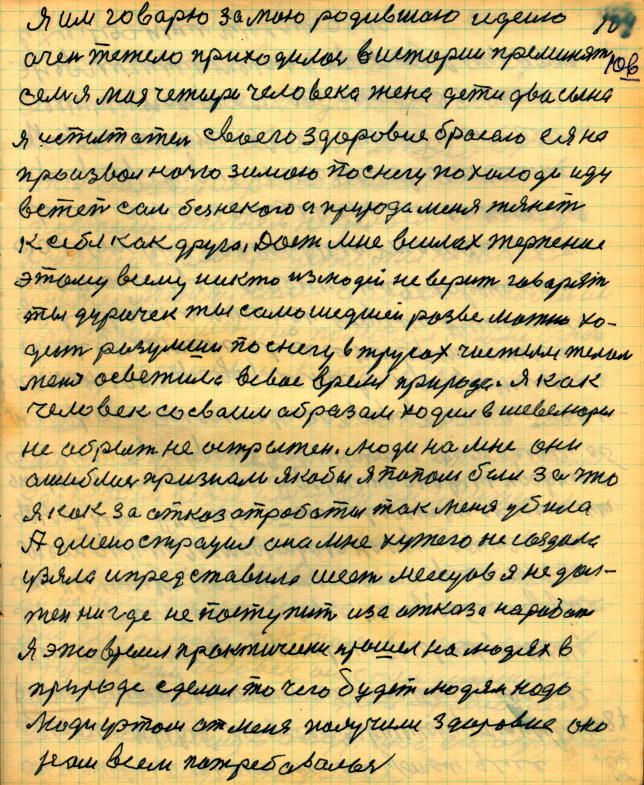 Я им говарю за мою родившаю идею
очен тежело приходилося в истории пременят
108
семя моя четыри человека жена дети два сына
я испытател своего здоровие бросаю ея на
произвол ночю зимою по снегу по холоду иду
в степ сам безнекого а природа меня тянет
к себя как друга, Дает мне в силах терпение
этому всему никто из людей не верит говарят
ты дурачек ты самошедший разве можно хо-
дит разумши по снегу в трусах чистым телом
меня осветила в свое время природа. Я как
человек со сваим образам ходил в шевелюри
не обрыт не острыжен. люди на мне они
ошиблис признали якобы я попом был за что
я как за отказ от работы так меня убила
Администрация она мне хужего не создала
узяла и представила шест месецов я не дол-
жен нигде не поступит из за отказа на работ
Я это время практически прошел на людях в
природе сделал то чего будет людям надо
люди у этом от меня получили здоровие оно
 им всем потребавалося